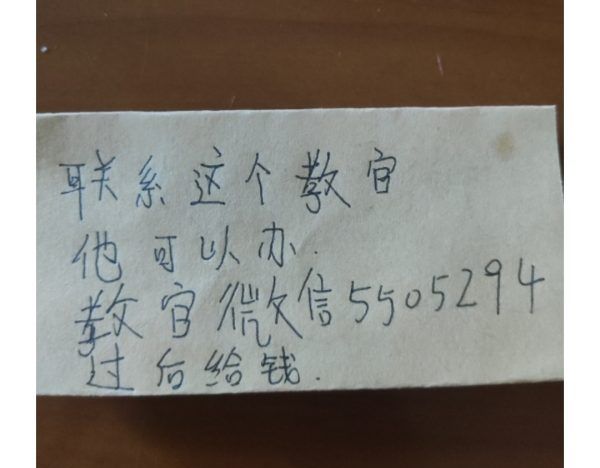 联系这个教官
他可以办.
教官微信5505294
过后给钱.